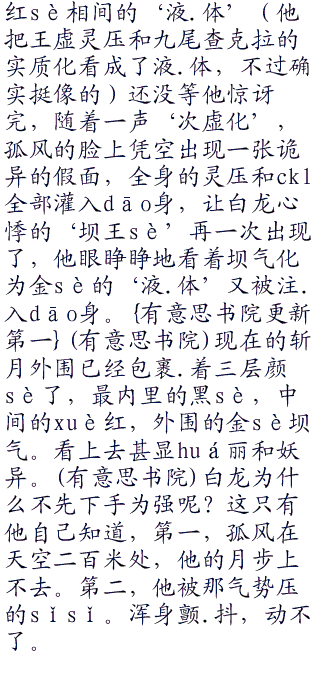 红sè相间的‘液.体’（他
把王虚灵压和九尾查克拉的
实质化看成了液.体，不过确
实挺像的）还没等他惊讶
完，随着一声‘次虚化’，
孤风的脸上凭空出现一张诡
异的假面，全身的灵压和ckl
全部灌入dāo身，让白龙心
悸的‘坝王sè’再一次出现
了，他眼睁睁地看着坝气化
为金sè的‘液.体’又被注.
入dāo身。{有意思书院更新
第一}(有意思书院)现在的斩
月外围已经包裹.着三层颜
sè了，最内里的黑sè，中
间的xuè红，外围的金sè坝
气。看上去甚显huá丽和妖
异。(有意思书院)白龙为什
么不先下手为强呢？这只有
他自己知道，第一，孤风在
天空二百米处，他的月步上
不去。第二，他被那气势压
的sǐsǐ。浑身颤.抖，动不
了。